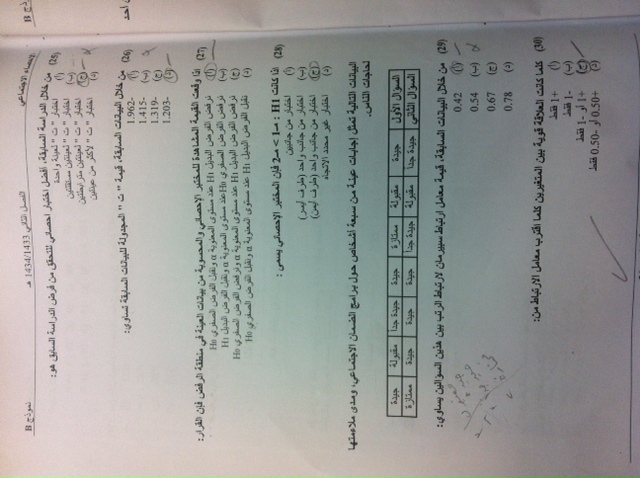 الإحصاء الاجتماعي
الفصل الثاني 1434/1433 هـ
نموذج B
(25) من خلال الدراسة السابقة، أفضل اختبار احصائي للتحقق من فرض الدراسة السابق هو:
(أ) اختبار " ت " لعينة واحدة
(ب) اختبار " ت " لعينتين مستقلتين
(ج) اختبار " ت " لعينتين مترابطتين
(د) اختبار " ت " لأكثر من عينتين
(26) من خلال البيانات السابقة، قيمة " ت " المجدولة للبيانات السابقة تساوي:
(أ) 1.962-
(ب) 1.415-
(ج) 1.319-
(د) 1.203-
(27) إذا وقعت القيمة المشاهدة للمختبر الإحصائي والمحسوبة من بيانات العينة في منطقة الرفض فإن القرار:
(أ) نرفض الفرض البديل H1 عند مستوى المعنوية α ونقبل الفرض الصفري H0
(ب) نرفض الفرض الصفري H0 عند مستوى المعنوية α ونقبل الفرض البديل H1
(ج) نرفض الفرض البديل H1 عند مستوى المعنوية α ونرفض الفرض الصفري H0
(د) نقبل الفرض البديل H1 عند مستوى المعنوية α ونقبل الفرض الصفري H0
(28) إذا كانت H1 : م1 > م2 فإن المختبر الإحصائي يسمى :
(أ) اختبار من جانبين
(ب) اختبار من جانب واحد (طرف أيسر)
(ج) اختبار من جانب واحد (طرف أيمن)
(د) اختبار غير محدد الاتجاه
البيانات التالية تمثل إجابات عينة من سبعة أشخاص حول برامج الضمان الاجتماعي، ومدى ملاءمتها
لحاجات الناس.
السؤال الأول جيدة مقبولة ممتازة جيدة جيدة جدا مقبولة جيدة
السؤال الثاني جيدة جدا مقبولة جيدة جدا جيدة جيدة جيدة ممتازة
(29) من خلال البيانات السابقة، قيمة معامل ارتباط سبيرمان لارتباط الرتب بين هذين السؤالين يساوي:
(أ) 0.42
(ب) 0.54
(ج) 0.67
(د) 0.78
(30) كلما كانت العلاقة قوية بين المتغيرين كلما اقترب معامل الارتباط من:
(أ) +1 فقط
(ب) -1 فقط
(ج) +1 أو -1 فقط
(د) +0.50 أو -0.50 فقط